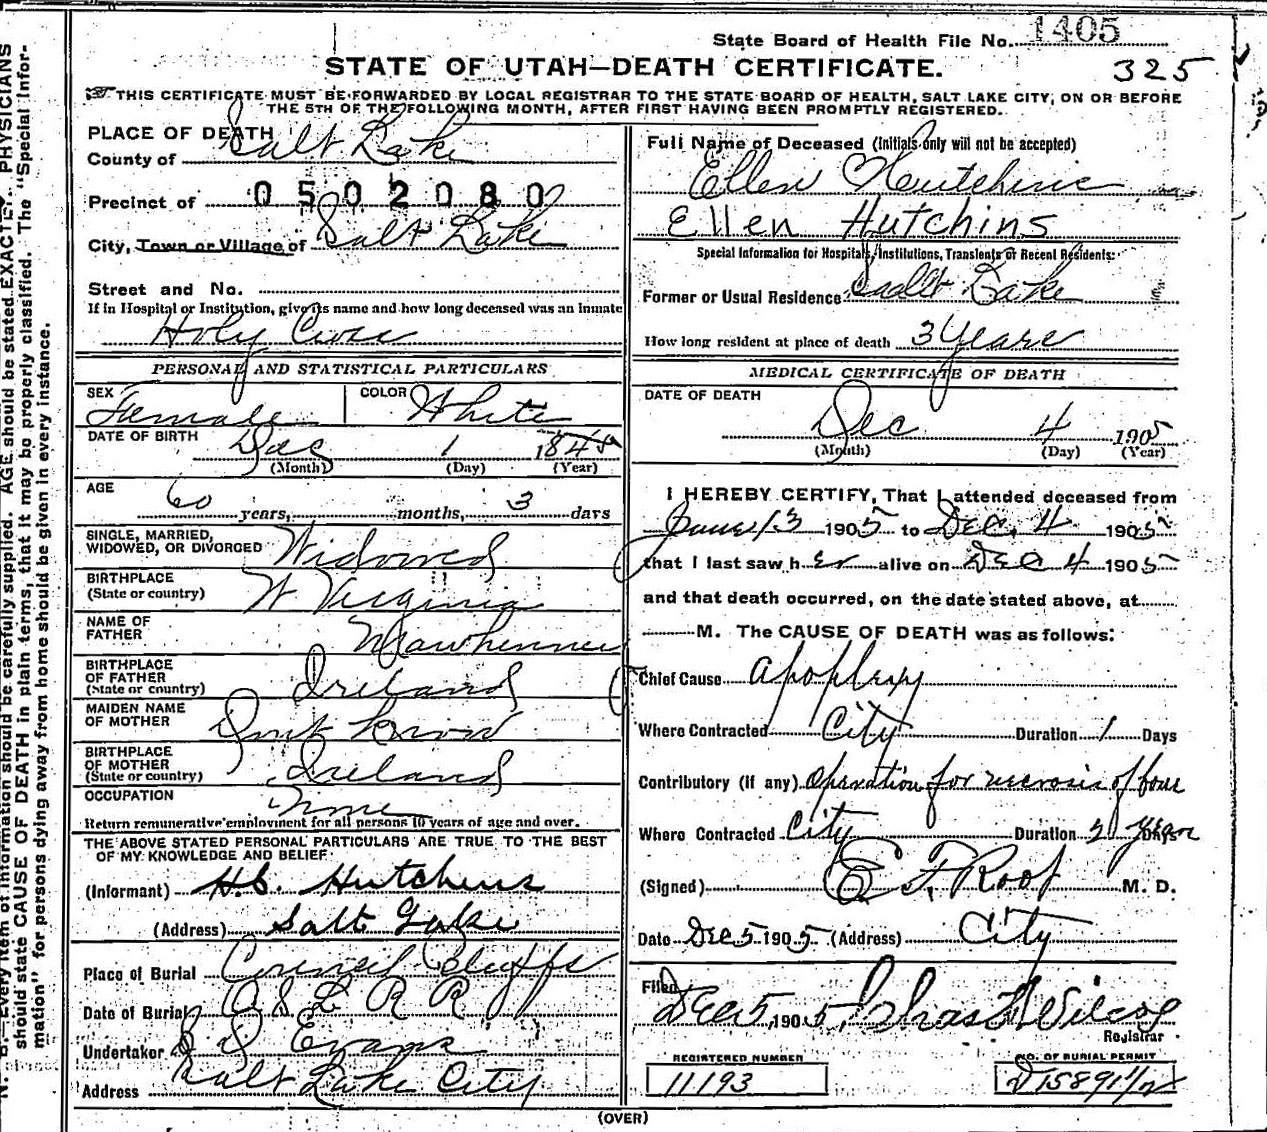 State Board of Health File No. 1405
STATE OF UTAH—DEATH CERTIFICATE.
325
THIS CERTIFICATE MUST BE FORWARDED BY LOCAL REGISTRAR TO THE STATE BOARD OF HEALTH, SALT LAKE CITY, ON OR BEFORE
THE 5TH OF THE FOLLOWING MONTH, AFTER FIRST HAVING BEEN PROMPTLY REGISTERED.
PLACE OF DEATH
County of Salt Lake
Precinct of 0502080
City, Town or Village of Salt Lake
Street and No.
If in Hospital or Institution, give its name and how long deceased was an inmate
Holy Cross
PERSONAL AND STATISTICAL PARTICULARS
SEX Female COLOR White
DATE OF BIRTH Dec 1 1845
(Month) (Day) (Year)
AGE 60 years, months, 3 days
SINGLE, MARRIED,
WIDOWED, OR DIVORCED Widowed
BIRTHPLACE
(State or country) W Virginia
NAME OF
FATHER Mawhinney
BIRTHPLACE
OF FATHER
(State or country) Ireland
MAIDEN NAME
OF MOTHER Dont Know
BIRTHPLACE
OF MOTHER
(State or country) Ireland
OCCUPATION None
Return remunerative employment for all persons 10 years of age and over.
THE ABOVE STATED PERSONAL PARTICULARS ARE TRUE TO THE BEST
OF MY KNOWLEDGE AND BELIEF
(Informant) H.S. Hutchins
(Address) Salt Lake
Place of Burial Council Bluffs
Date of Burial O S L R R
Undertaker Evans
Address Salt Lake City
Full Name of Deceased (Initials only will not be accepted)
Ellen Hutchins
Ellen Hutchins
Special Information for Hospitals, Institutions, Transients or Recent Residents:
Former or Usual Residence Salt Lake
How long resident at place of death 3 Years
MEDICAL CERTIFICATE OF DEATH
DATE OF DEATH
Dec 4 1905
(Month) (Day) (Year)
I HEREBY CERTIFY, That I attended deceased from
June 13 1905 to Dec. 4 1905
that I last saw her alive on Dec 4 1905
and that death occurred, on the date stated above, at
M. The CAUSE OF DEATH was as follows:
Chief Cause Apoplexy
Where Contracted City Duration 1 Days
Contributory (if any) Operation for necrosis of bone
Where Contracted City Duration
(Signed) E F. Root M. D.
Date Dec 5 1905 (Address) City
Filed Dec 5, 1905, Chas Wilcox
Registrar
REGISTERED NUMBER
11193
NO. OF BURIAL PERMIT
D 15891 1/2
(OVER)
N. B.—Every item of information should be carefully supplied. AGE should be stated EXACTLY. PHYSICIANS
should state CAUSE OF DEATH in plain terms, that it may be properly classified. The "Special Infor-
mation" for persons dying away from home should be given in every instance.